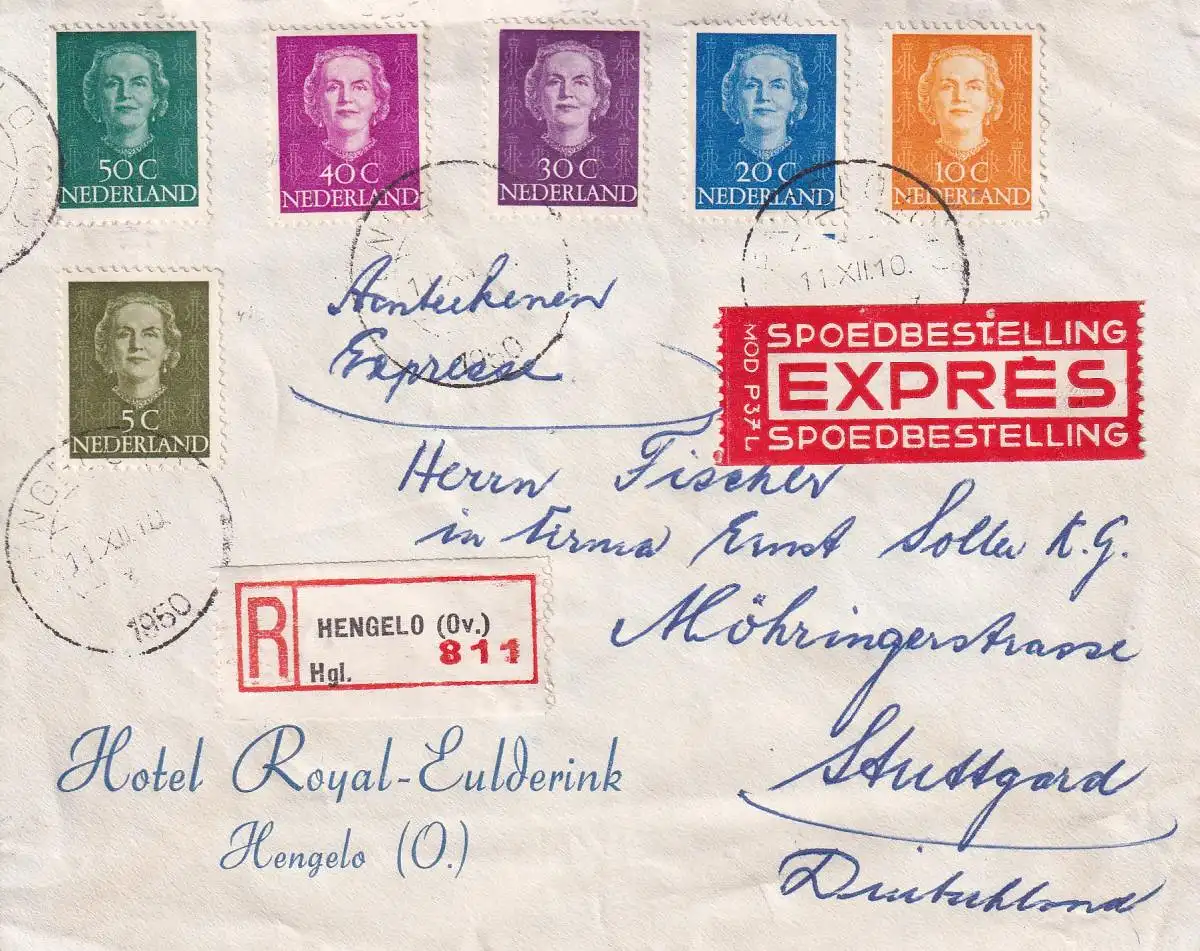 50 C
NEDERLAND
40 C
NEDERLAND
30 C
NEDERLAND
20 C
NEDERLAND
10 C
NEDERLAND
5 C
NEDERLAND
11.XII.10.
1950
Aanteekenen
Expresse
MOD P37L
SPOEDBESTELLING
EXPRÈS
SPOEDBESTELLING
Herrn Fischer
in Firma Ernst Soller K.G.
Möhringerstrasse
Stuttgard
Deutschland
11.XII.10.
1950
R
HENGELO (Ov.)
811
Hgl.
Hotel Royal-Eulderink
Hengelo (O.)